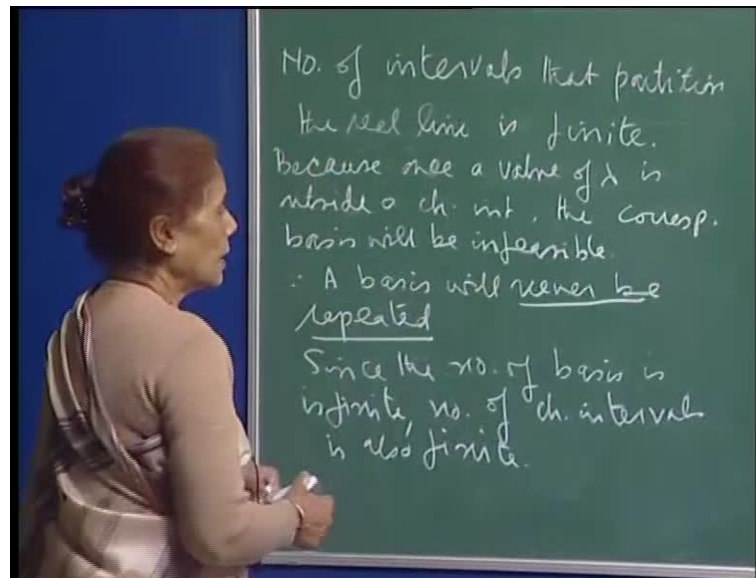 No. of intervals that partition
the real line is finite.
Because once a value of λ is
outside a ch. int. the corresp.
basis will be infeasible.
∴ A basis will never be
repeated
Since the no. of basis is
is finite, no. of ch. intervals
is also finite.